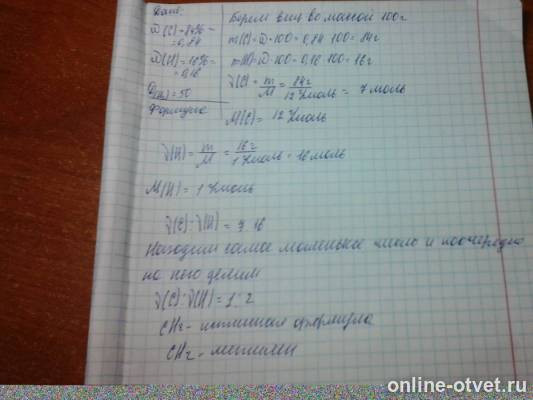 Дано:
ω(C)=84%=
=0,84
ω(H)=16%=
=0,16
D(H₂)=50
Формула
Берем в-ва массой 100г
m(C)=ω·100=0,84·100=84г
m(H)=ω·100=0,16·100=16г
ν(C)=m/M=84г/12г/моль=7моль
M(C)=12г/моль
ν(H)=m/M=16г/1г/моль=16моль
M(H)=1г/моль
ν(C):ν(H)=7:16
Находим самое маленькое число и поочередно
на него делим
ν(C):ν(H)=1:2
CH₂-истинная формула
CH₂-метилен
online-otvet.ru